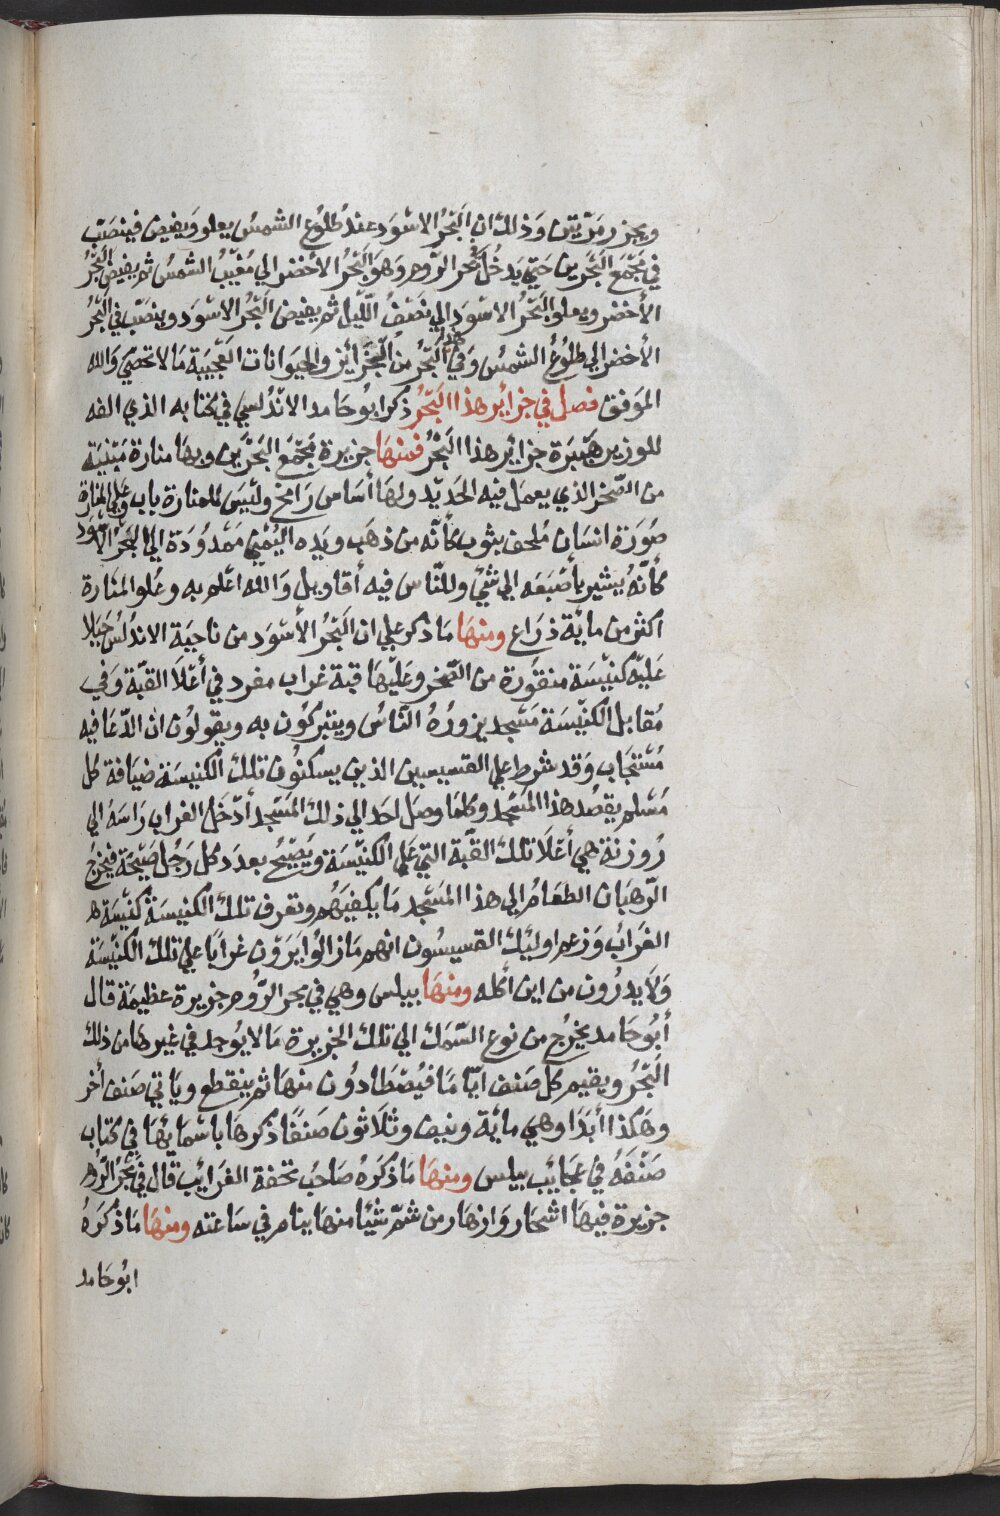 ويجزر مرّتين وذلك ان البَحرُ الاسْوَد عند طُلوُع الشمسُ يعلو ويفيض فينصَبّ
في مَجْمَع البَحَرين حَتي يَدخُل بَحر الرّوم وَهوَ البَحُر الأخضر الي مُغَيِبُ الشمسُ ثم يفيض البَحُرُ
الأخضر ويعلو البَحْر الاسْوَد الي نصَفُ اللّيل ثم يفيض البَحُر الاسْوَد وينصَبّ في البَحْر
الأخضر الي طلُوُعُ الشمسُ وَفي هذا البَحُر من الجَزَائر والحيَوانات العَجيبَة مَا لا تحصَي وَالله
الموَفق فصل في جزائر هذا البَحْر ذكر ابُو حَامد الاندُلسي في كتابه الذي الفه
للوزير هَبَيَرة جزائر هذا البَحْرُ فمنهَا جزيرة مَجْمَع البَحَرين وبهَا منارة مَبنيَة
من الصّخر الذي يعمَل فيه الحَديّد ولهَا أسَاس رَامخ وليَسَ للمنارة باب وعَلي المنارة
صُوَرة انسَان مُلحف بثوب كأنّه من ذهَب ويَده اليُمْني مَمْدوُدَة الي البَحْر الاسْوَد
كأنّهُ يُشير بأصْبَعَه الي شَئ وللنّاس فيه أقاويل وَالله اعْلم به وعَلو المنَارة
اكثر من مايَة ذرَاع ومنهَا مَا ذكر علي ان البَحْرُ الأسْوَد من ناحيَة الاندُلسُ جَبَلا
عَليَه كنيْسَة منقوُرة من الصّخر وعَليْهَا قبة غراب مفرد في أعْلاَ القبّة وَفي
مُقابل الكنيْسَة مَسْجد يزوُرُهُ النّاسُ ويتبركوُن به ويقولوُن ان الدّعَا فيه
مُسْتجَاب وَقد شرط علي القسيسين الذين يسكنوُن تلك الكنيسَة ضيَافة كل
مُسْلم يقصُد هذا المَسْجد وكلمَا وصَل احَد الي ذلك المَسْجد أدْخَل الغراب رَاسَهُ الي
رُوزنة هي أعْلاَ تلك القبّة التي عَلي الكنيْسَة ويَصَيْحُ بعدَد كل رَجُل صَيْحَة فيخرج
الرّهبَان الطعَامُ الي هذا المسَّجد مَا يكفيَهُم وتعرف تلك الكنيسَة كنيْسَة
الغرَابُ وَزعم اوليِك القسيسُون انهم مَا زالوُا يَرَوْن غرابًا علي تلك الكنيْسَة
وَلاَ يدرُون من اين أكله ومنهَا بيلس وهي في بحر الرّوُم جزيرة عظيمَة قال
أبُو حَامد يخرُج من نوع السّمَك الي تلك الجزيرة مَا لا يوُجد في غيرهَا من ذلك
البَحْرُ ويقيم كل صَنف ايّامًا فيُصْطادوُن منهَا ثم ينقطع ويَاتي صَنف أخر
وهَكذا أبَدًا وهي مايَة ونيف وثلاَثون صَنفًا ذكرهَا باسْمايهَا في كتاب
صَنّفَهُ في عجَايب بيلس ومنهَا مَا ذكَرهُ صَاحبُ تحفة الغرَايبُ قال في بَحْر الرّوُم
جزيرة فيهَا اشجَار وَازهَار من شمّ شيْئا منهَا ينام في سَاعته ومنهَا مَا ذكَرهُ
ابُو حَامد